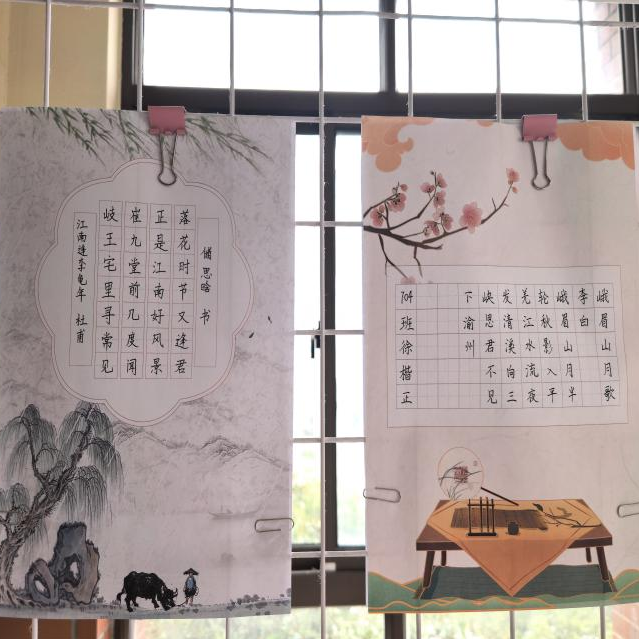 江南逢李龟年 杜甫
岐王宅里寻常见
崔九堂前几度闻
正是江南好风景
落花时节又逢君
书
峨眉山月歌
李白
峨眉山月半
轮秋影入平
羌江水流夜
发清溪向三
峡思君不见
下渝州
704班徐楷正